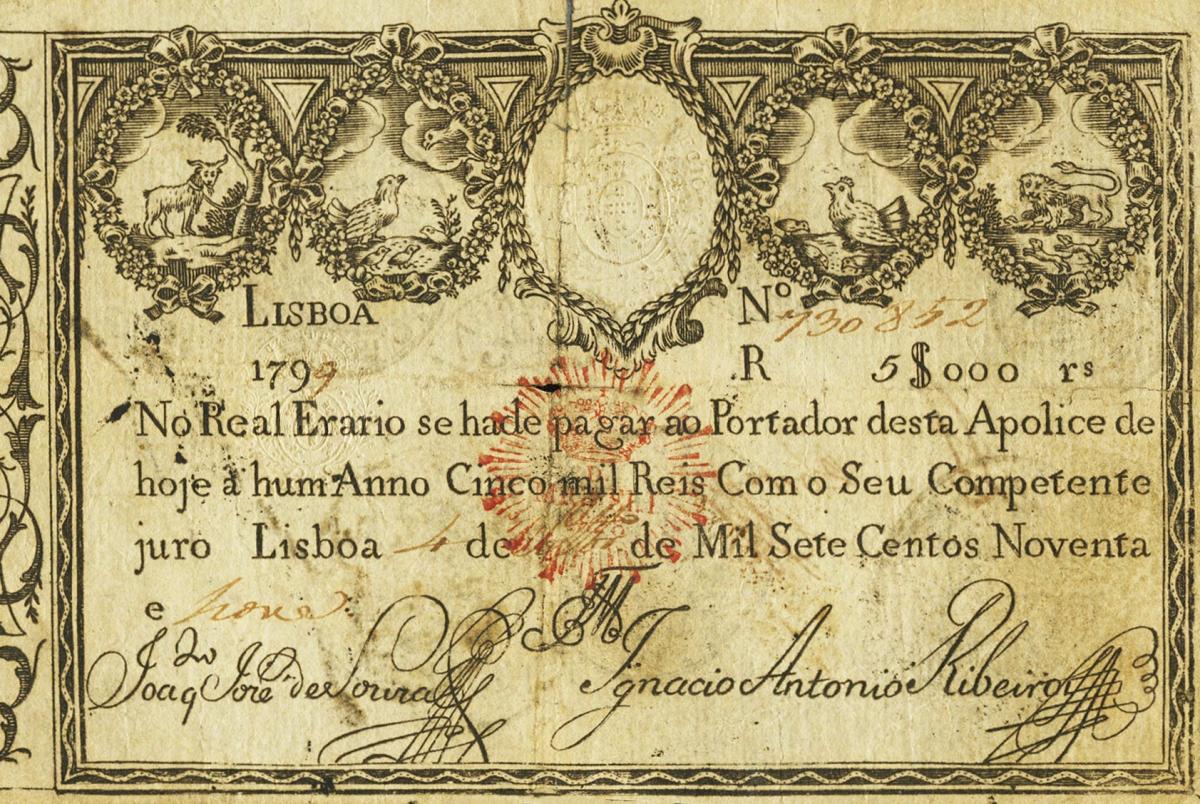 LISBOA
Nº 730852
1799
R 5$000 rs
No Real Erario se hade pagar ao Portador desta Apolice de
hoje á hum Anno Cinco mil Reis Com o Seu Competente
juro Lisboa 4 de de Mil Sete Centos Noventa
e nove
Joaq José de Souza
Ignacio Antonio Ribeiro